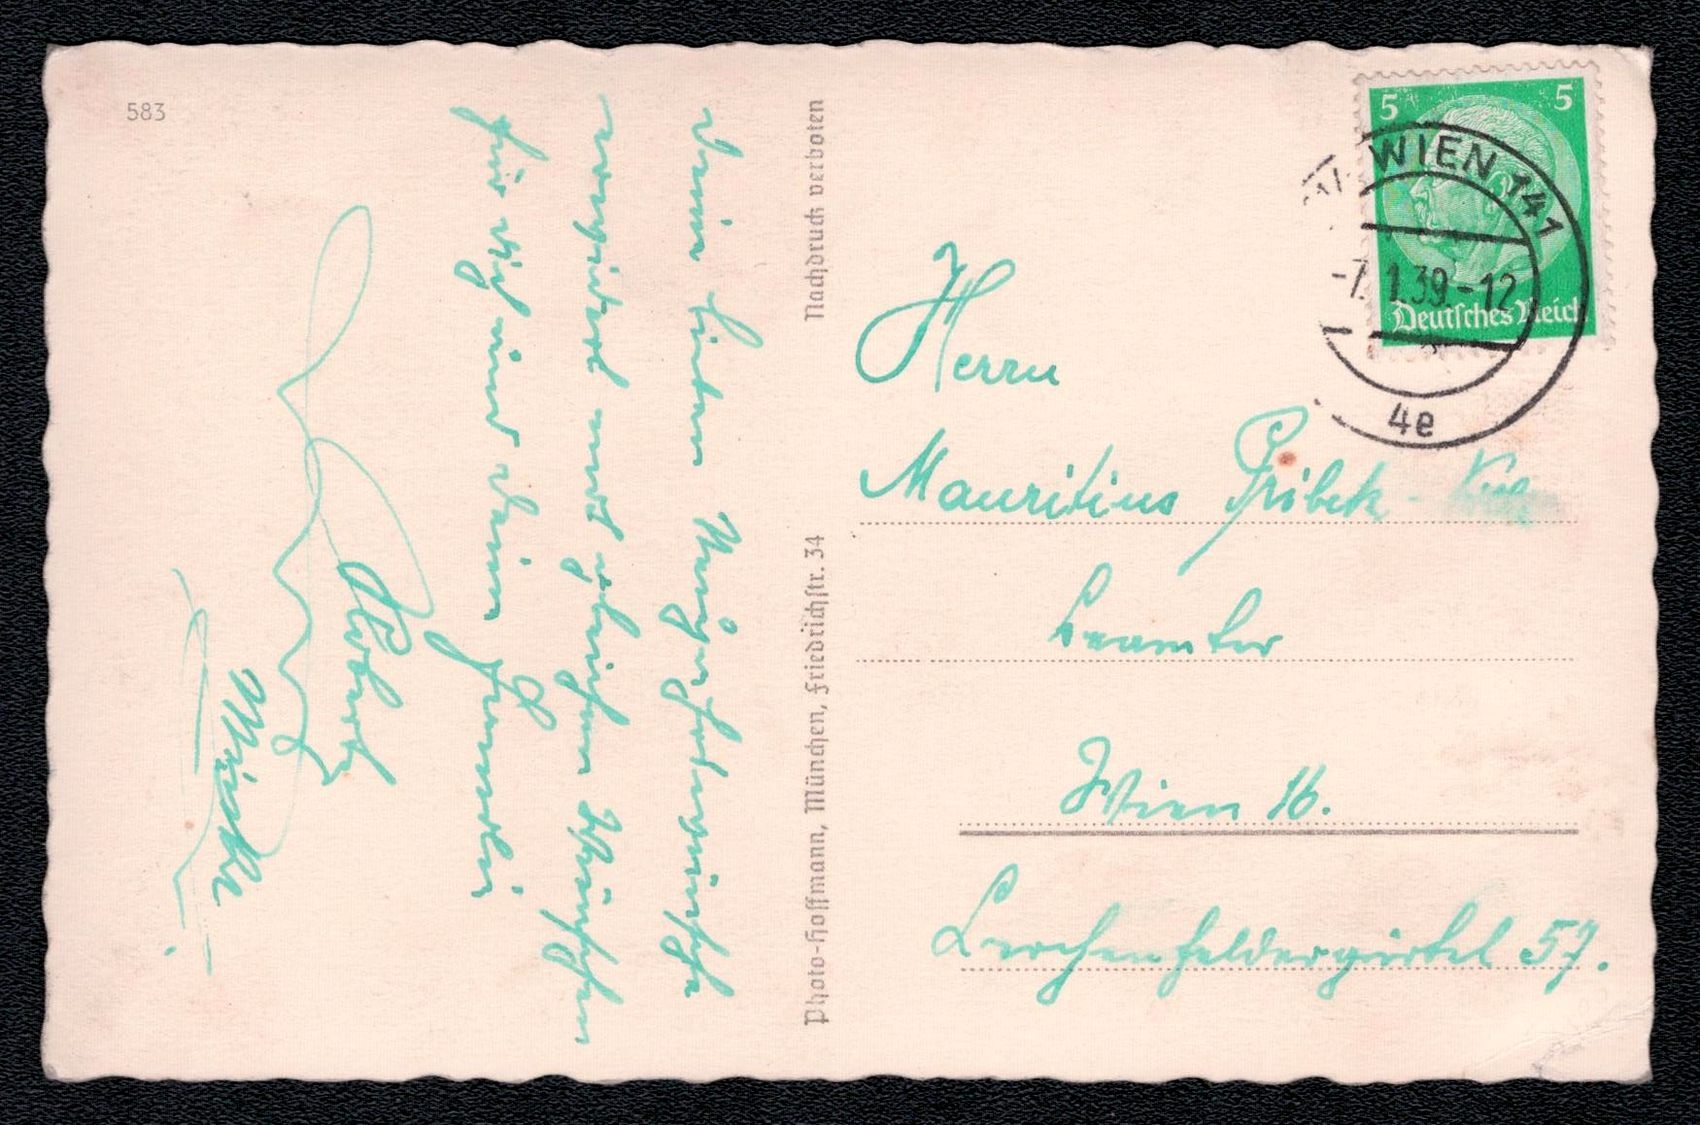 583
Deine lieben Neujahrswünsche
erwidert mit gleichen Wünschen
für Dich und Deine Familie
Nachdruck verboten
Photo-Hoffmann, München, Friedrichstr. 34
5 5
Deutsches Reich
WIEN 141
-7. 1.39.-12
4e
Herrn
Mauritius Pribek
Beamter
Wien 16.
Lerchenfeldergürtel 57.